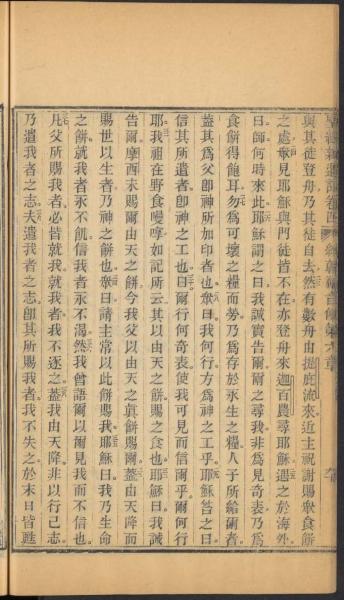 與其徒登舟乃其徒自去然有數舟由提庇濟來近主祝謝賜衆食餅
之處衆見耶穌與門徒皆不在亦登舟來迦百農尋耶穌遇之於海外
曰師何時來此耶穌謂之曰我誠實告爾爾之尋我非爲見奇表乃爲
食餅得飽耳勿爲可壞之糧而勞乃爲存於永生之糧人子所給爾者
蓋其爲父卽神所加印者也衆曰我何行方爲神之工乎耶穌答之曰
信其所遣者卽神之工也曰爾行何奇表使我可見而信爾乎爾何行
耶我祖在野食嗎嗱如記所云其以由天之餅賜之食也耶穌曰我誠
告爾摩西未賜爾由天之餅今我父以由天之眞餅賜爾蓋由天降而
賜世以生者乃神之餅也衆曰請主常以此餅賜我耶穌曰我乃生命
之餅就我者永不飢信我者永不渴然我曾語爾以爾見我而不信也
凡父所賜我者必皆就我就我者我不逐之蓋我由天降非以行己志
乃遣我者之志夫遣我者之志卽其所賜我者我不失之於末日皆甦